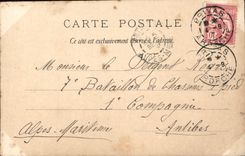 CARTE POSTALE
Ce côté est exclusivement réservé à l'adresse
Monsieur le
7e Bataillon de Chasseurs à Pied
1e Compagnie
Alpes-Maritime Antibes